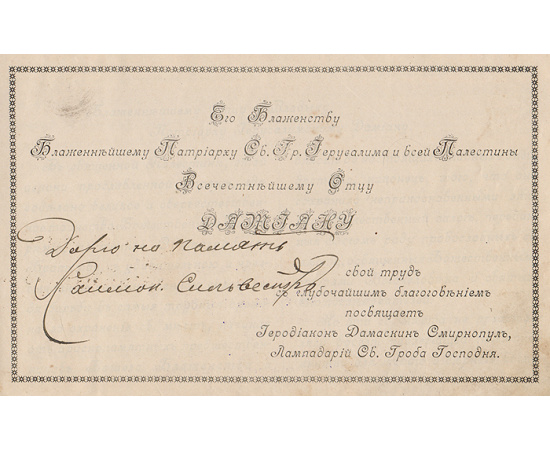 Его Блаженству
Блаженнѣйшему Патріарху Св. Гр. Іерусалима и всей Палестины
Всечестнѣйшему Отцу
ДАМІАНУ
Дарю на память
Сильвестръ
свой трудъ
съ глубочайшимъ благоговѣніемъ
посвящаетъ
Іеродіаконъ Дамаскин Смирнопулъ,
Лампадарій Св. Гроба Господня.